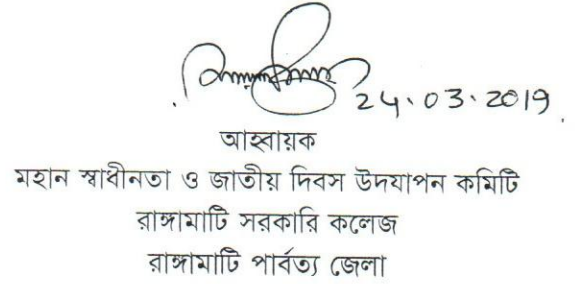 24.03.2019
আহবায়ক
মহান স্বাধীনতা ও জাতীয় দিবস উদযাপন কমিটি
রাঙ্গামাটি সরকারি কলেজ
রাঙ্গামাটি পার্বত্য জেলা